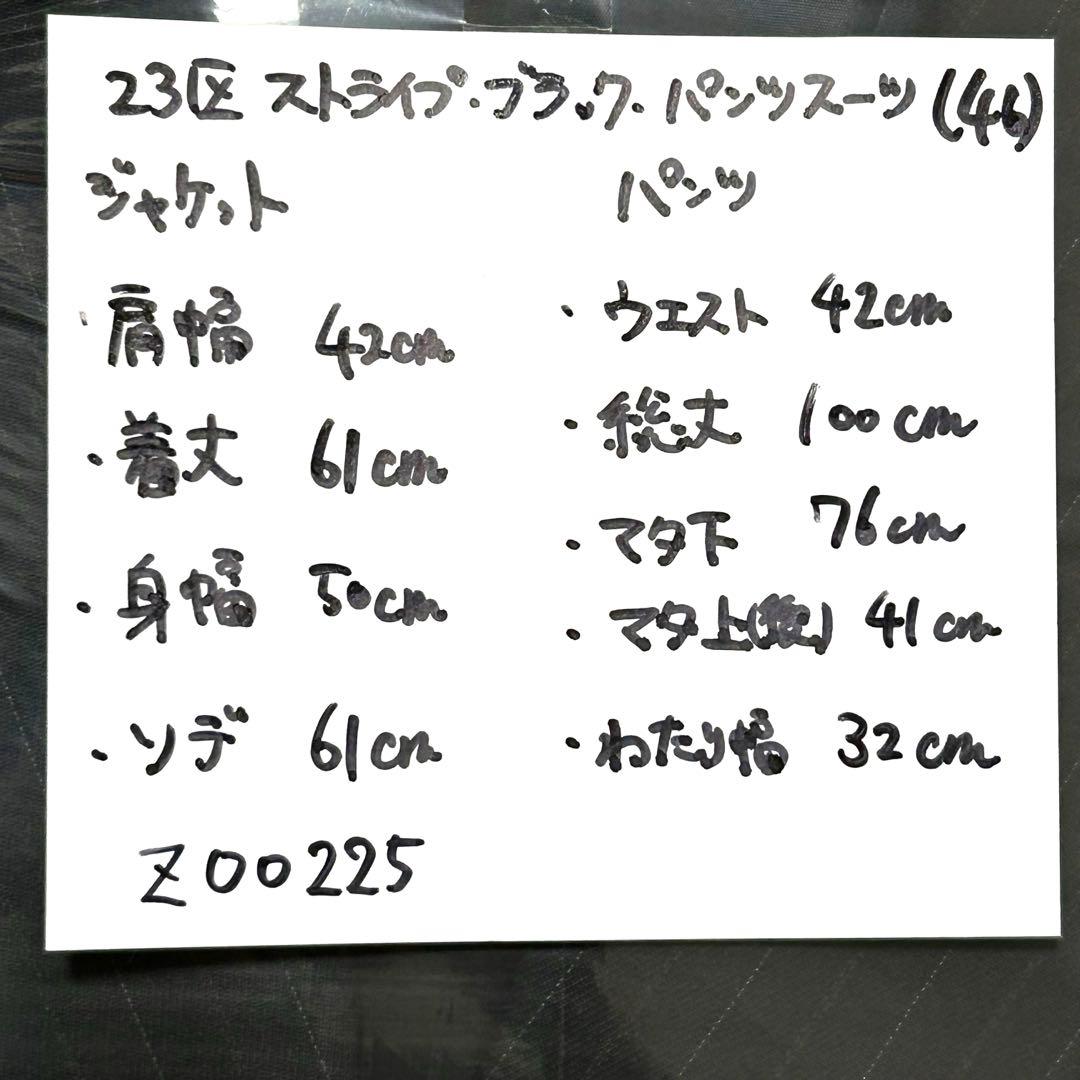 23区 ストライプ・ブラック・パンツスーツ (46)
ジャケット
・肩幅 42cm
・着丈 61cm
・身幅 50cm
・ソデ 61cm
Z00225
パンツ
・ウエスト 42cm
・総丈 100cm
・マタ下 76cm
・マタ上(後) 41cm
・わたり幅 32cm